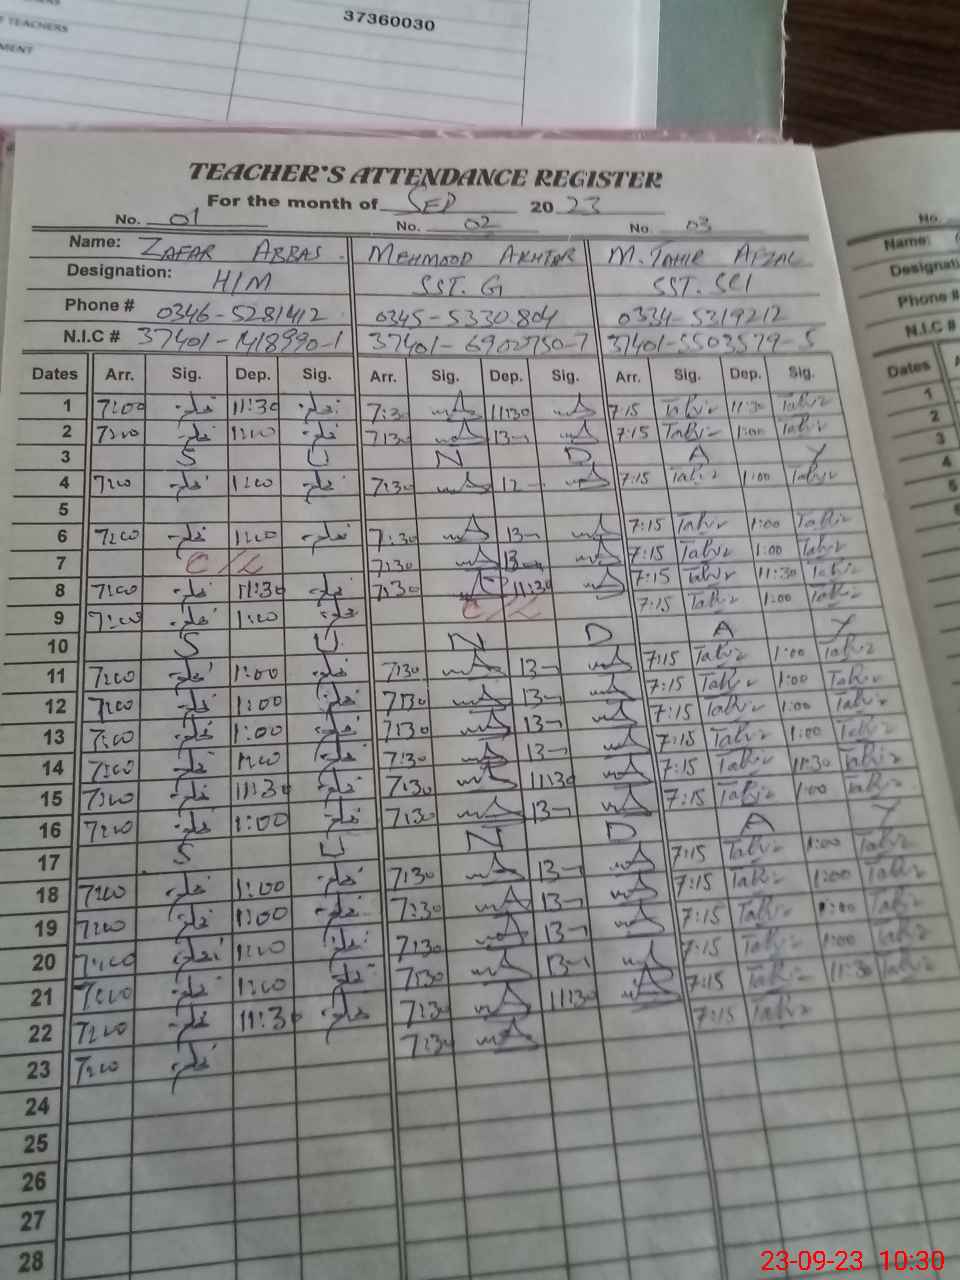 37360030
TEACHERS
MENT
TEACHER'S ATTENDANCE REGISTER
For the month of SEP 2023
No. 01 No. 02 No. 03
Name: ZAFAR ABBAS MEHMOOD AKHTAR M. TAHIR AFZAL
Designation: H/M SST. G SST. SCI
Phone # 0346-5281412 0345-5330804 0334-5319212
N.I.C # 37401-1418990-1 37401-6902750-7 37401-5503579-5
Dates Arr. Sig. Dep. Sig. Arr. Sig. Dep. Sig. Arr. Sig. Dep. Sig.
1 7:00 11:30 7:30 11:30 7:15 Tahir 11:30 Tahir
2 7:00 1:00 7:30 13- 7:15 Tahir 1:00 Tahir
3 S U N D A Y
4 7:00 1:00 7:30 12- 7:15 Tahir 1:00 Tahir
5
6 7:00 1:00 7:30 13- 7:15 Tahir 1:00 Tahir
7 C/L 7:30 13- 7:15 Tahir 1:00 Tahir
8 7:00 11:30 7:30 11:30 7:15 Tahir 11:30 Tahir
9 7:00 1:00 C/L 7:15 Tahir 1:00 Tahir
10 S U N D A Y
11 7:00 1:00 7:30 13- 7:15 Tahir 1:00 Tahir
12 7:00 1:00 7:30 13- 7:15 Tahir 1:00 Tahir
13 7:00 1:00 7:30 13- 7:15 Tahir 1:00 Tahir
14 7:00 1:00 7:30 13- 7:15 Tahir 1:00 Tahir
15 7:00 11:30 7:30 11:30 7:15 Tahir 11:30 Tahir
16 7:00 1:00 7:30 13- 7:15 Tahir 1:00 Tahir
17 S U N D A Y
18 7:00 1:00 7:30 13- 7:15 Tahir 1:00 Tahir
19 7:00 1:00 7:30 13- 7:15 Tahir 1:00 Tahir
20 7:00 1:00 7:30 13- 7:15 Tahir 1:00 Tahir
21 7:00 1:00 7:30 13- 7:15 Tahir 1:00 Tahir
22 7:00 11:30 7:30 11:30 7:15 Tahir 11:30 Tahir
23 7:00 7:30 7:15 Tahir
24
25
26
27
28
No.
Name:
Designati
Phone #
N.I.C #
Dates
1
2
3
4
5
23-09-23 10:30